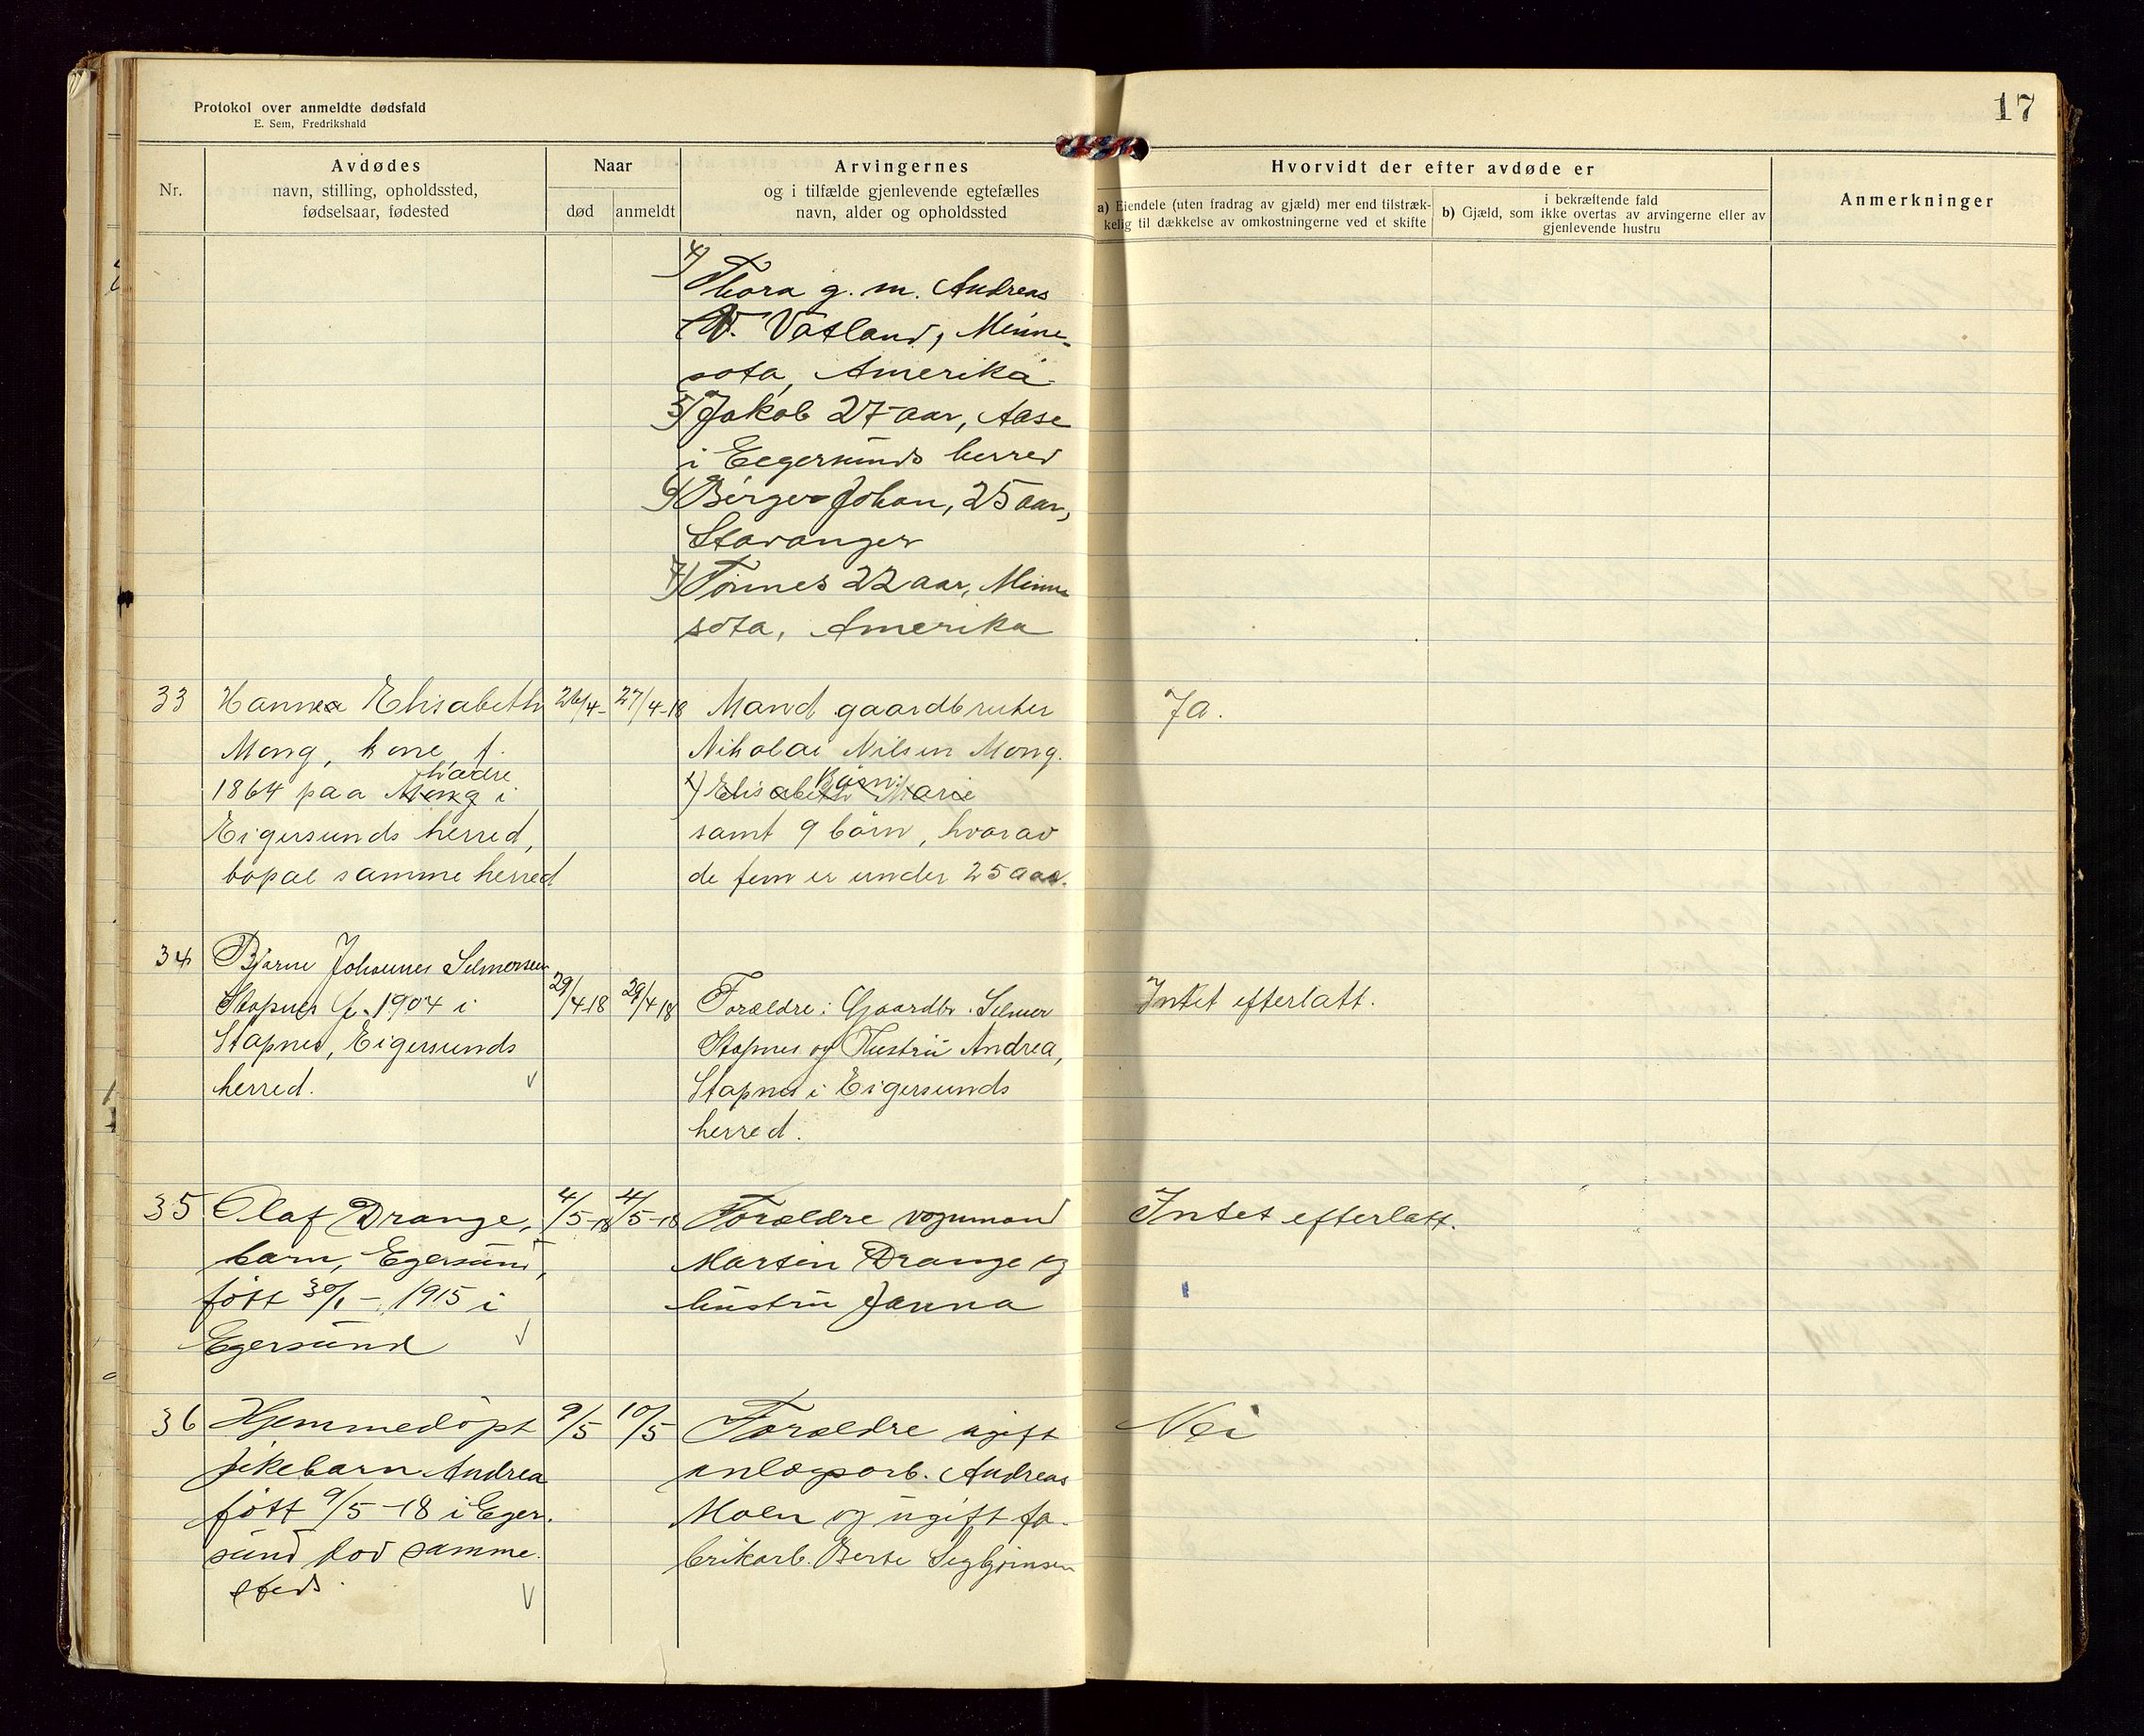 Protokol over anmeldte dødsfald
E. Sem, Fredrikshald
17
Nr.
Avdødes
navn, stilling, opholdssted,
fødselsaar, fødested
Naar
død
anmeldt
Arvingernes
og i tilfælde gjenlevende egtefælles
navn, alder og opholdssted
Hvorvidt der efter avdøde er
a) Eiendele (uten fradrag av gjæld) mer end tilstræk-
kelig til dækkelse av omkostningerne ved et skifte
i bekræftende fald
b) Gjæld, som ikke overtas av arvingerne eller av
gjenlevende hustru
Anmerkninger
4)
Thora g. m. Andreas
Vatland, Minne-
sota, Amerika
5) Jakob 27 aar, Aase
i Eegersunds herred
6) Børger Johan, 25 aar,
Stavanger
7) Tønnes 22 aar, Minne
sota, Amerika
33 Hanna Elisabeth 26/4- 27/4-18 Mand gaardbruker Ja.
Mong, kone, f. Nikolai Nilsen Mong.
1864 paa Mong i 1) Elisabeth Marie
Børn:
Eigersunds herred, samt 9 børn, hvorav
bopæl samme herred de fem er under 25 aar.
34 Bjarne Johannes Selmersen
Stapnes f. 1904 i 29/4-18 29/4 18 Forældre: Gaardbr. Selmer Intet efterlatt.
Stapnes, Eigersunds Stapnes og Hustru Andrea,
herred. Stapnes i Eigersunds
herred.
35 Olaf Drange, 4/5-18 4/5-18 Forældre vognmand Intet efterlatt.
barn, Egersund, Martin Drange og
født 30/1 - 1915 i hustru Janna
Egersund
36 Hjemmedøpt 9/5 10/5 Forældre ugift Nei
pikebarn Andrea anlægsarb. Andreas
født 9/5-18 i Eger- Moen og ugift fa-
sund død samme- brikarb. Berte Sigbjørnsen
steds.